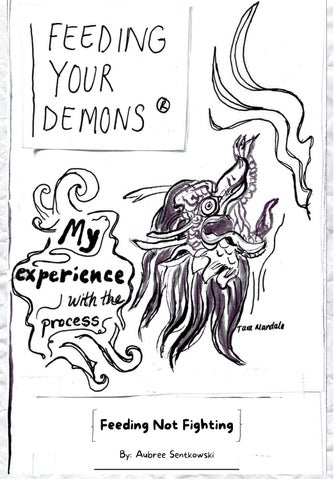 FEEDING
YOUR
DEMONS ®
My
experience
with the
process
Tara Mandala
Feeding Not Fighting
By: Aubree Sentkowski